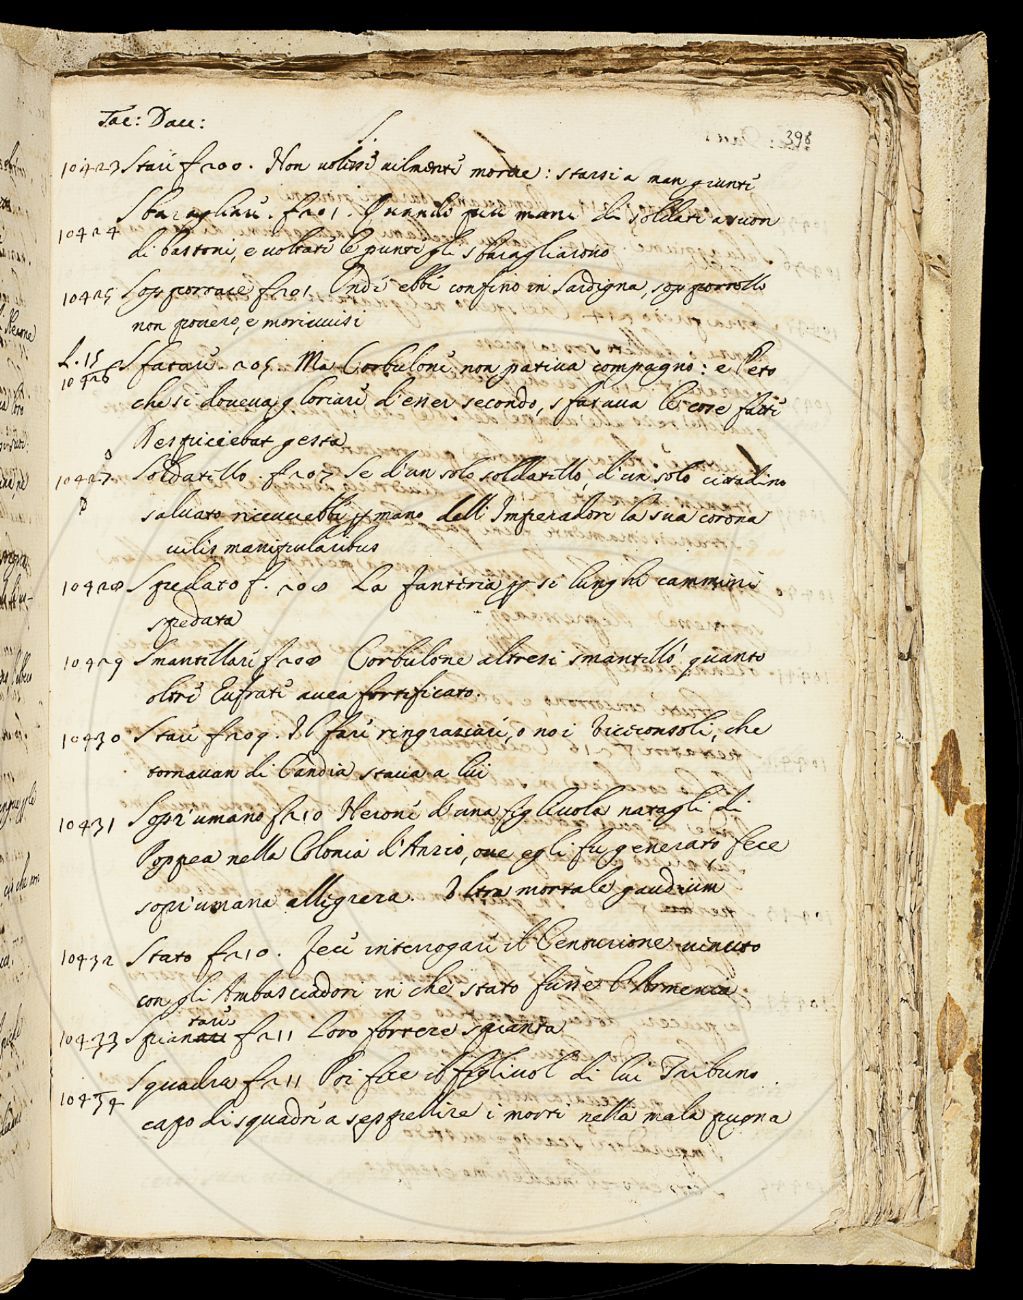 Tac: Dau:
398
S.
10423 Stare f 200. Non volessi vilmente morire: starsi a man giunte
10424 Sbaragliare. f 201. Quando più mani di soldati a suon
di bastoni, e voltate le punte gli sbaragliarono
10425 Sopportare f 201. Onde ebbe confino in Sardigna, sopportollo
non povero, e morivvisi
L. 15
10426 Sfatare. 205. Ma Corbulone non pativa compagno: e Peto
che si doveva gloriare d'esser secondo, sfatava le cose fatte
Despiciebat gesta
10427 Soldatello. f 207 Se d'un solo soldatello, d'un solo cittadino
salvato ricevevebbe p mano dell Imperadore la sua corona
vilis manipularibus
10428 Spedato f. 208 La fanteria p si lunghi cammini
spedata
10429 Smantellare f 208 Corbulone altresi smantellò quanto
oltre Eufrate avea fortificato.
10430 Stare f 209. Il fare ringraziare, o no i Viceconsoli, che
tornavan di Candia stava a lui
10431 Sopr'umano f 210 Nerone d'una figliuola natagli di
Poppea nella Colonia d'Anzio, ove egli fu generato fece
sopr'umana allegreza. Ultra mortale gaudium
10432 Stato f 210. Fece interrogare il Centurione venuto
con gli Ambasciadori in che stato fusse l'Armenia
10433 Spiantare f 211 Loro fortezze spianta
10434 Squadra f 211 Poi fece il figliuol di lui Tribuno
capo di squadre a seppellire i morti nella mala pugna